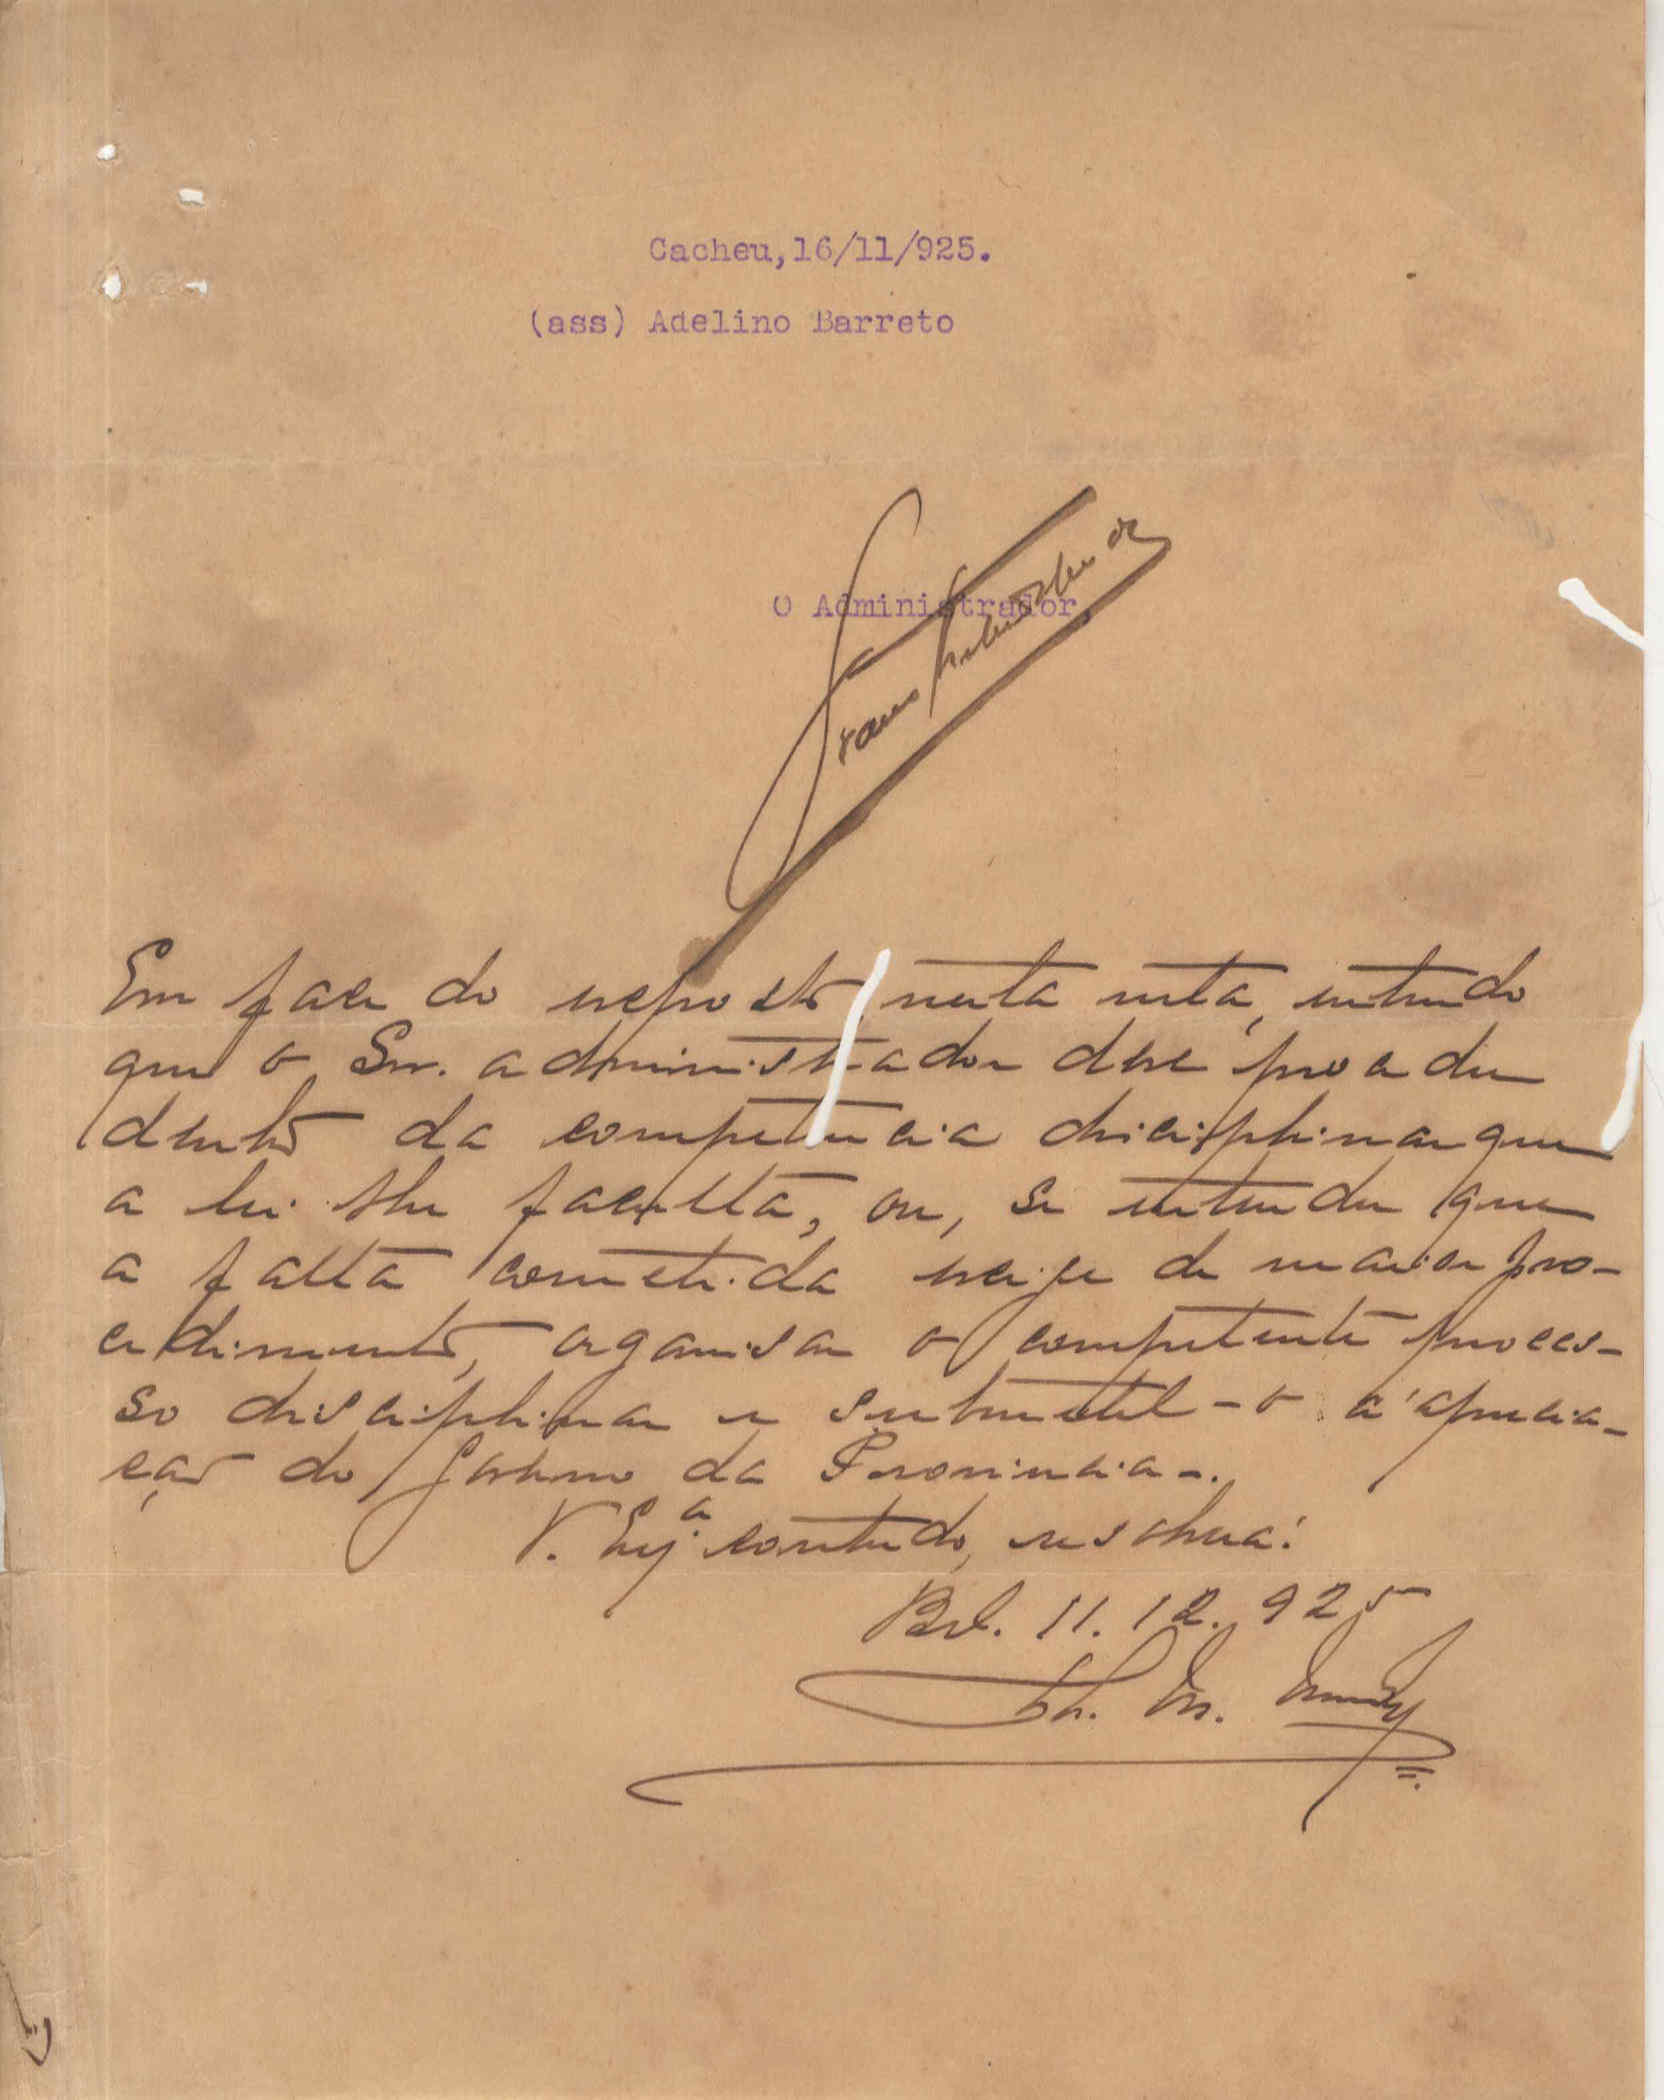 Cacheu,16/11/925.
(ass) Adelino Barreto
O Administrador,
Em face do exposto nesta nota, entendo
que o Snr. administrador deve proceder
dentro da competencia disciplinar que
a lei lhe faculta, ou, se entender que
a falta cometida exige de maior pro-
cedimento, organisar o competente proces-
so disciplinar e submetel-o á aprecia-
ção do Governo da Provincia-.
V. Exª contudo, resolverá.
Bol. 11.12.925